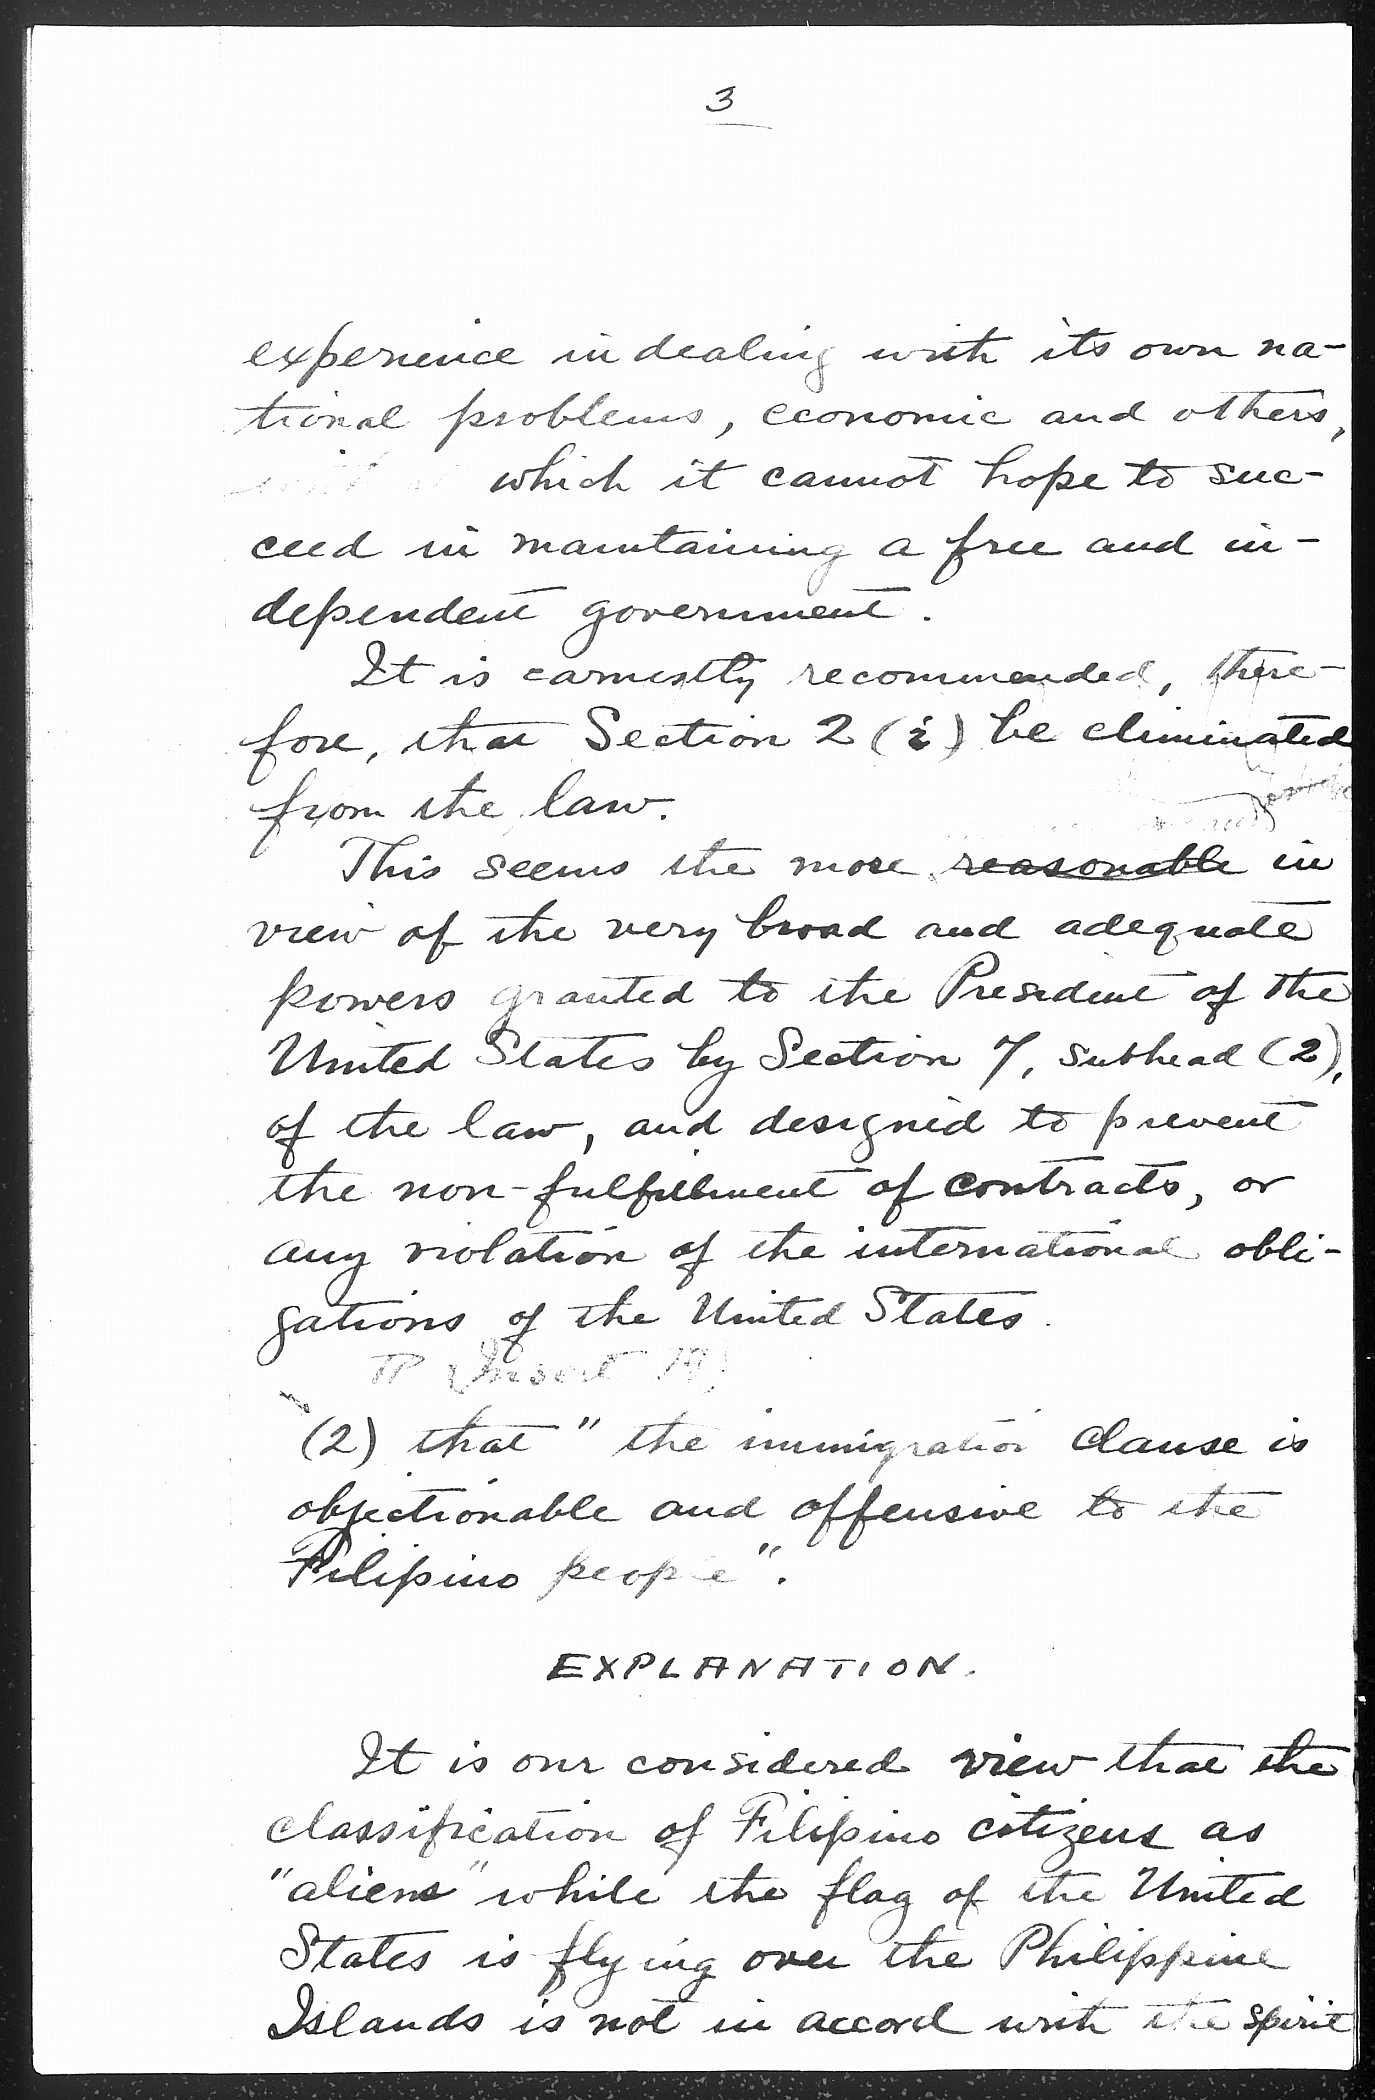 3
experience in dealing with its own na-
tional problems, economic and others,
which it cannot hope to suc-
ceed in maintaining a free and in-
dependent government.
It is earnestly recommended, there-
fore, that Section 2 (i) be eliminated
from the law.
This seems the more reasonable in
view of the very broad and adequate
powers granted to the President of the
United States by Section 7, subhead (2),
of the law, and designed to prevent
the non-fulfillment of contracts, or
any violation of the international obli-
gations of the United States.
¶ (Insert A)
(2) that "the immigration clause is
objectionable and offensive to the
Filipino people".
EXPLANATION.
It is our considered view that the
classification of Filipino citizens as
"aliens" while the flag of the United
States is flying over the Philippine
Islands is not in accord with the spirit